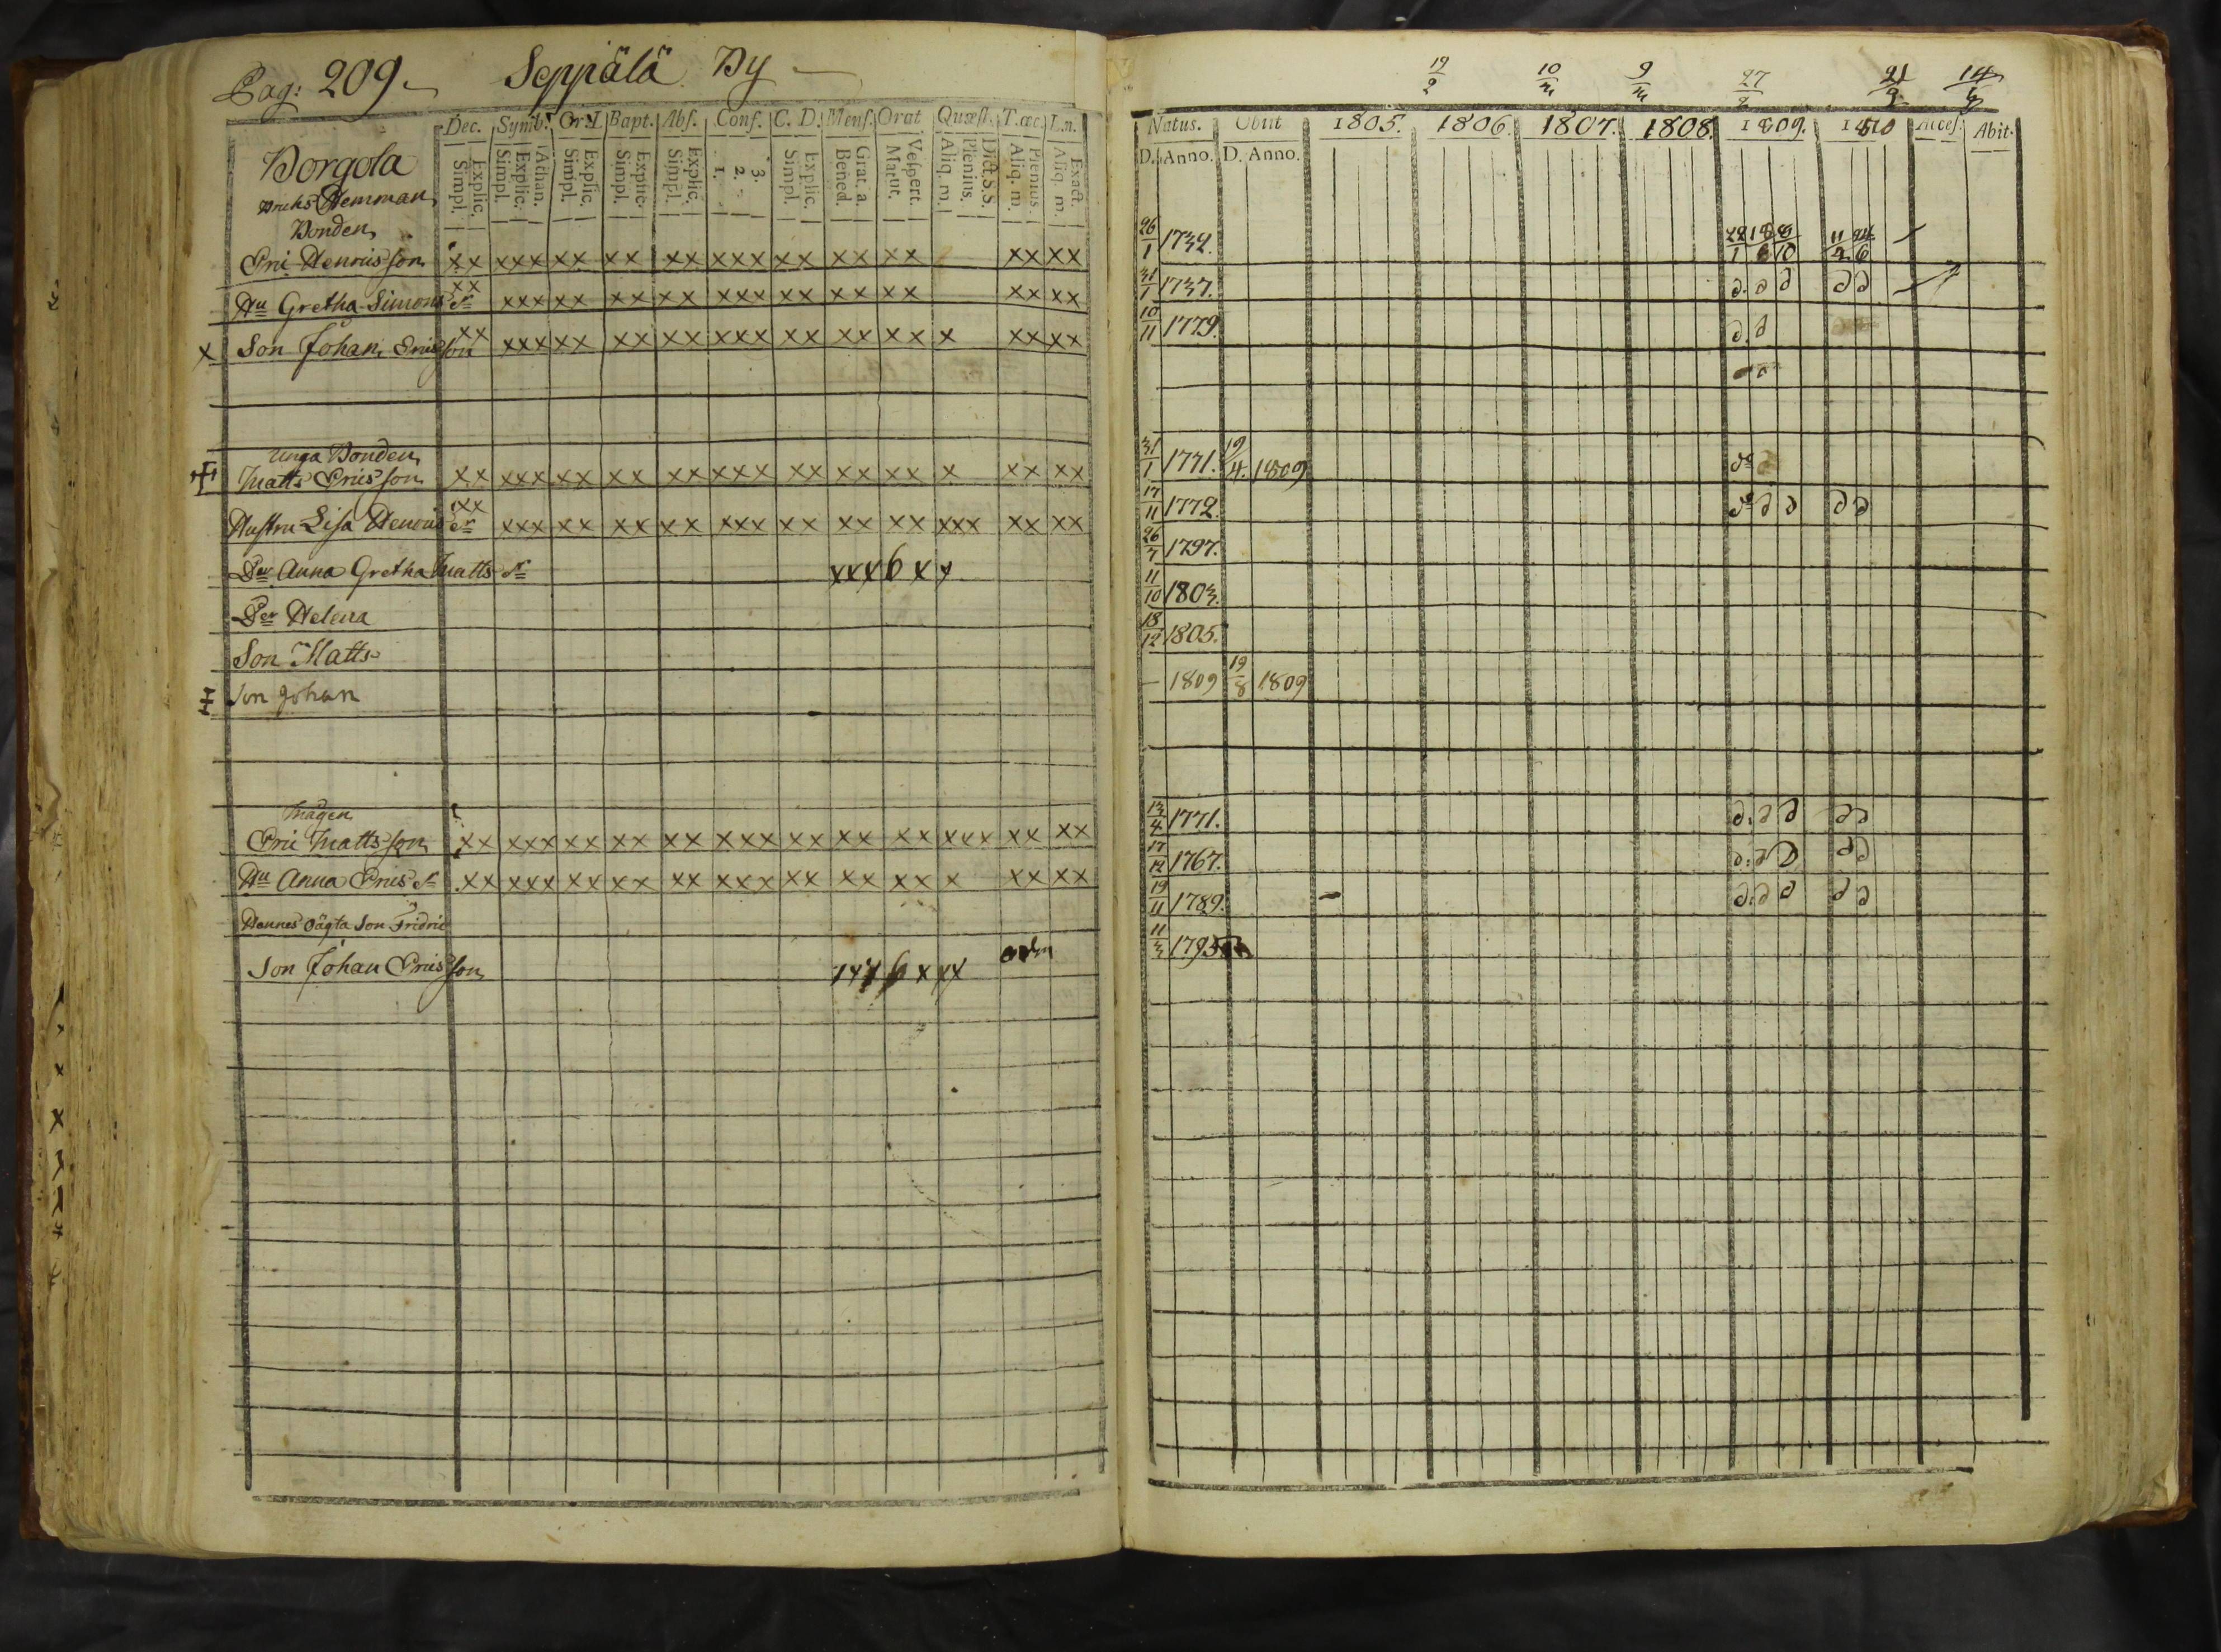 Pag: 209. Seppälä By
Dec. Symb. Or. Bapt. Abs. Conf. C. D. Mens. Orat Quæst. T. œc. L.n.
Explic. Simpl. Athan. Explic. Simpl. Explic. Simpl. Explic. Simpl. Explic. Simpl. 3. 2. 1. Explic. Simpl. Grat. a. Bened. Vespert. Matut. Dict. S.S. Plenius. Aliq. m. Plenius. Aliq. m. Exact. Aliq. m.
Borgola
Bruks Hemman
Bonden
Eric Henricsson xx xxx xx xx xx xxx xx xx xx xx xx
Hu Gretha Simons dr xx xxx xx xx xx xxx xx xx xx xx xx
x Son Johan Ericsson xx xxx xx xx xx xxx xx xx xx x xx xx
Unga Bonden
Matts Ericsson xx xxx xx xx xx xxx xx xx xx x xx xx
Hustru Lisa Henrics dr xx xxx xx xx xx xxx xx xx xx xxx xx xx
Der Anna Gretha Matts dr xxx6xx
Der Helena
Son Matts
Son Johan
Mågen
Eric Mattsson xx xxx xx xx xx xxx xx xx xx xxx xx xx
Hu Anna Erics dr xx xxx xx xx xx xxx xx xx xx x xx xx
Hennes oägta Son Fridric
Son Johan Ericsson
19/2 10/3 9/3 27/2 21/2
Natus. Obiit 1805. 1806. 1807. 1808. 1809. 1810 Acces. Abit.
D. Anno. D. Anno.
26/1 1732.
31/1 1737.
10/11 1779.
31/1 1771. 19/4. 1809
17/11 1772.
26/7 1797.
11/10 1803.
18/12 1805.
– 1809 19/8 1809
13/4 1771.
17/12 1767.
19/11 1789.
11/3 1795